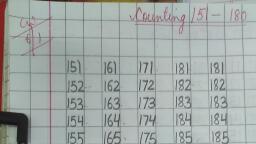 Counting 151 - 180
151 161 171 181 181
152 162 172 182 182
153 163 173 183 183
154 164 174 184 184
155 165 175 185 185